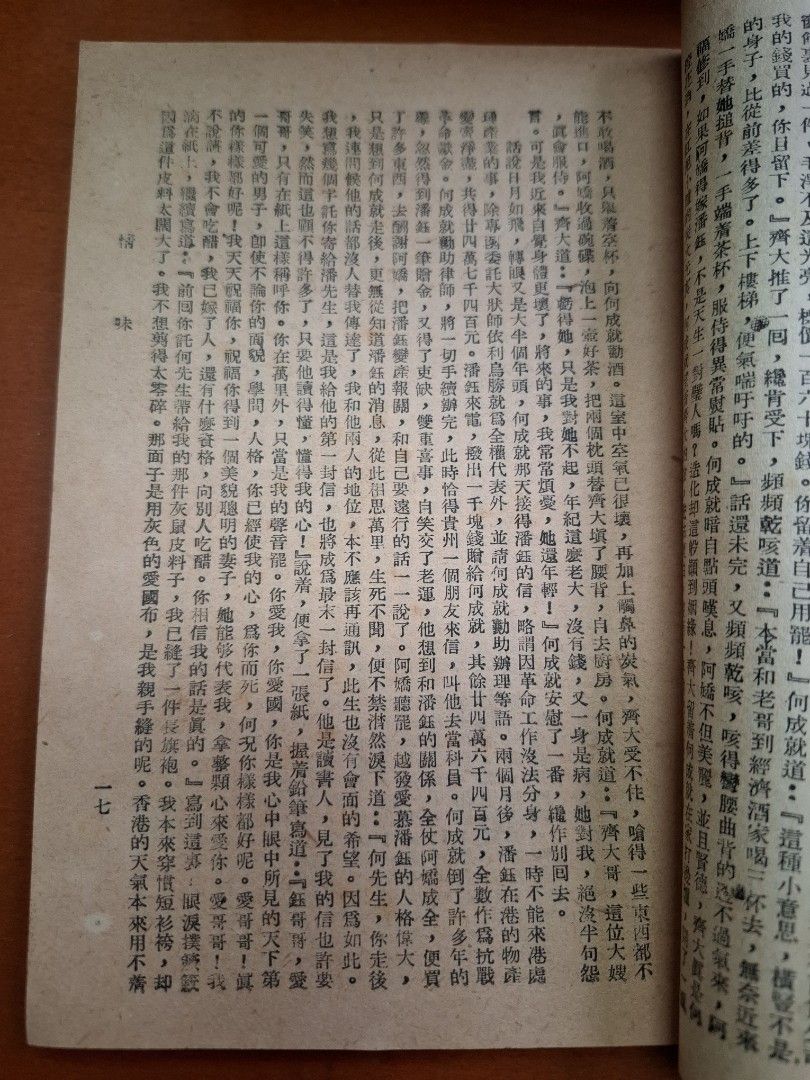 百六十塊錢。你留着自己用罷！』何成就道：『這種小意思，橫豎不是
我的錢買的，你且留下。』齊大推了一回，纔肯受下，頻頻乾咳道：『本當和老哥到經濟酒家喝三杯去，無奈近來
的身子，比從前差得多了。上下樓梯，便氣喘吁吁的。』話還未完，又頻頻乾咳，咳得彎腰曲背的透不過氣來，阿
嬌一手替她搥背，一手端着茶杯，服侍得異常熨貼。何成就暗自點頭嘆息，阿嬌不但美麗，並且賢德，齊大眞是何
修到，如果阿嬌得嫁潘鈺，不是天生一對璧人嗎？造化却這般顚倒姻緣！齊大留着何成就在家打邊
不敢喝酒，只舉着空杯，向何成就勸酒。這室中空氣已很壞，再加上觸鼻的炭氣，齊大受不住，嗆得一些東西都不
能進口，阿嬌收過碗碟，泡上一壺好茶，把兩個枕頭替齊大填了腰背，自去廚房。何成就道：『齊大哥，這位大嫂
，眞會服侍。』齊大道：『虧得她，只是我對她不起，年紀這麼老大，沒有錢，又一身是病，她對我，絕沒半句怨
言。可是我近來自覺身體更壞了，將來的事，我常常煩憂，她還年輕！』何成就安慰了一番，纔作別回去。
話說日月如飛，轉眼又是大半個年頭，何成就那天接得潘鈺的信，略謂因革命工作沒法分身，一時不能來港處
理產業的事，除專函委託大狀師依利鳥勝就爲全權代表外，並請何成就勷助辦理等語。兩個月後，潘鈺在港的物產
變賣淨盡，共得廿四萬七千四百元。潘鈺來電，撥出一千塊錢贈給何成就，其餘廿四萬六千四百元，全數作爲抗戰
革命獻金。何成就勷助律師，將一切手續辦完，此時恰得貴州一個朋友來信，叫他去當科員。何成就倒了許多年的
霉，忽然得到潘鈺一筆贈金，又得了吏缺，雙重喜事，自笑交了老運，他想到和潘鈺的關係，全仗阿嬌成全，便買
了許多東西，去酬謝阿嬌，把潘鈺變產報國，和自己要遠行的話一一說了。阿嬌聽罷，越發愛慕潘鈺的人格偉大，
只是想到何成就走後，更無從知道潘鈺的消息，從此相思萬里，生死不聞，便不禁潸然淚下道：『何先生，你走後
，我連問候他的話都沒人替我傳達了，我和他兩人的地位，本不應該再通訊，此生也沒有會面的希望。因爲如此。
我想寫幾個字託你寄給潘先生，這是我給他的第一封信，也將成爲最末一封信了。他是讀書人，見了我的信也許要
失笑，然而這也顧不得許多了，只要他讀得懂，懂得我的心！』說着，便拿了一張紙，握着鉛筆寫道：『鈺哥哥，愛
哥哥，只有在紙上這樣稱呼你。你在萬里外，只當是我的聲音罷。你愛我，你愛國，你是我心中眼中所見的天下第
一個可愛的男子，卽使不論你的面貌，學問，人格，你已經使我的心，爲你而死，何況你樣樣都好呢。愛哥哥！眞
的你樣樣都好呢！我天天祝福你，祝福你得到一個美貌聰明的妻子，她能够代表我，拿整顆心來愛你。愛哥哥！我
不說謊，我不會吃醋，我已嫁了人，還有什麽資格，向別人吃醋。你相信我的話是眞的。』寫到這裏，眼淚撲簌簌
滴在紙上，繼續寫道：『前回你託何先生帶給我的那件灰鼠皮料子，我已縫了一件長旗袍。我本來穿慣短衫袴，却
因爲這件皮料太闊大了。我不想剪得太零碎。那面子是用灰色的愛國布，是我親手縫的呢。香港的天氣本來用不着
情味
一七